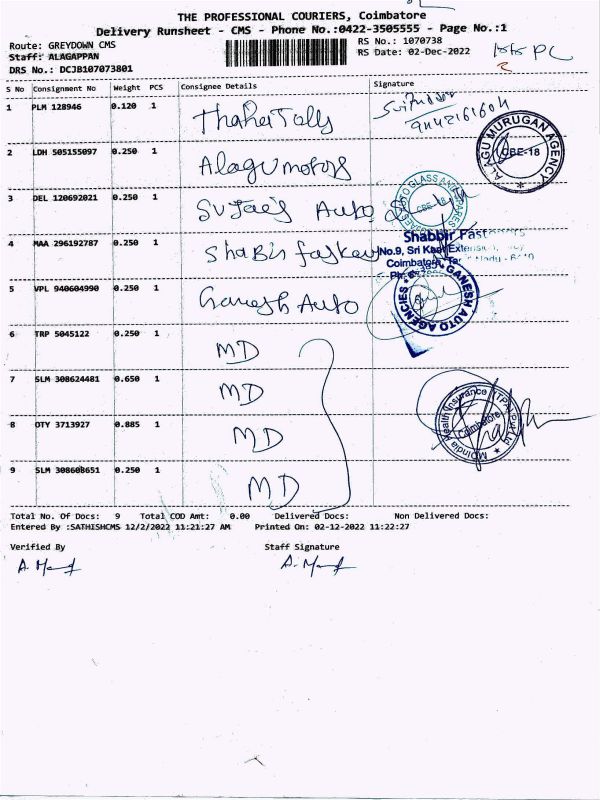 THE PROFESSIONAL COURIERS, Coimbatore
Delivery Runsheet - CMS - Phone No.:0422-3505555 - Page No.:1
Route: GREYDOWN CMS
Staff: ALAGAPPAN
DRS No.: DCJB107073801
RS No.: 1070738
RS Date: 02-Dec-2022
S No Consignment No Weight PCS Consignee Details Signature
1 PLM 128946 0.120 1
2 LDH 505155097 0.250 1 Alagu motors
ALAGU MURUGAN AGENCY
CBE-18
3 DEL 120692021 0.250 1 Auto
4 MAA 296192787 0.250 1
Shabbir
No.9, Sri
Coimbatore,
5 VPL 940604990 0.250 1 Ganesh Auto
GANESH AUTO AGENCIES
6 TRP 5045122 0.250 1 MD
7 SLM 308624481 0.650 1 MD
8 OTY 3713927 0.885 1 MD
MDIndia Health Insurance (TPA) Pvt Ltd
Coimbatore
9 SLM 308608651 0.250 1 MD
Total No. Of Docs: 9 Total COD Amt: 0.00 Delivered Docs: Non Delivered Docs:
Entered By :SATHISHCMS 12/2/2022 11:21:27 AM Printed On: 02-12-2022 11:22:27
Verified By Staff Signature